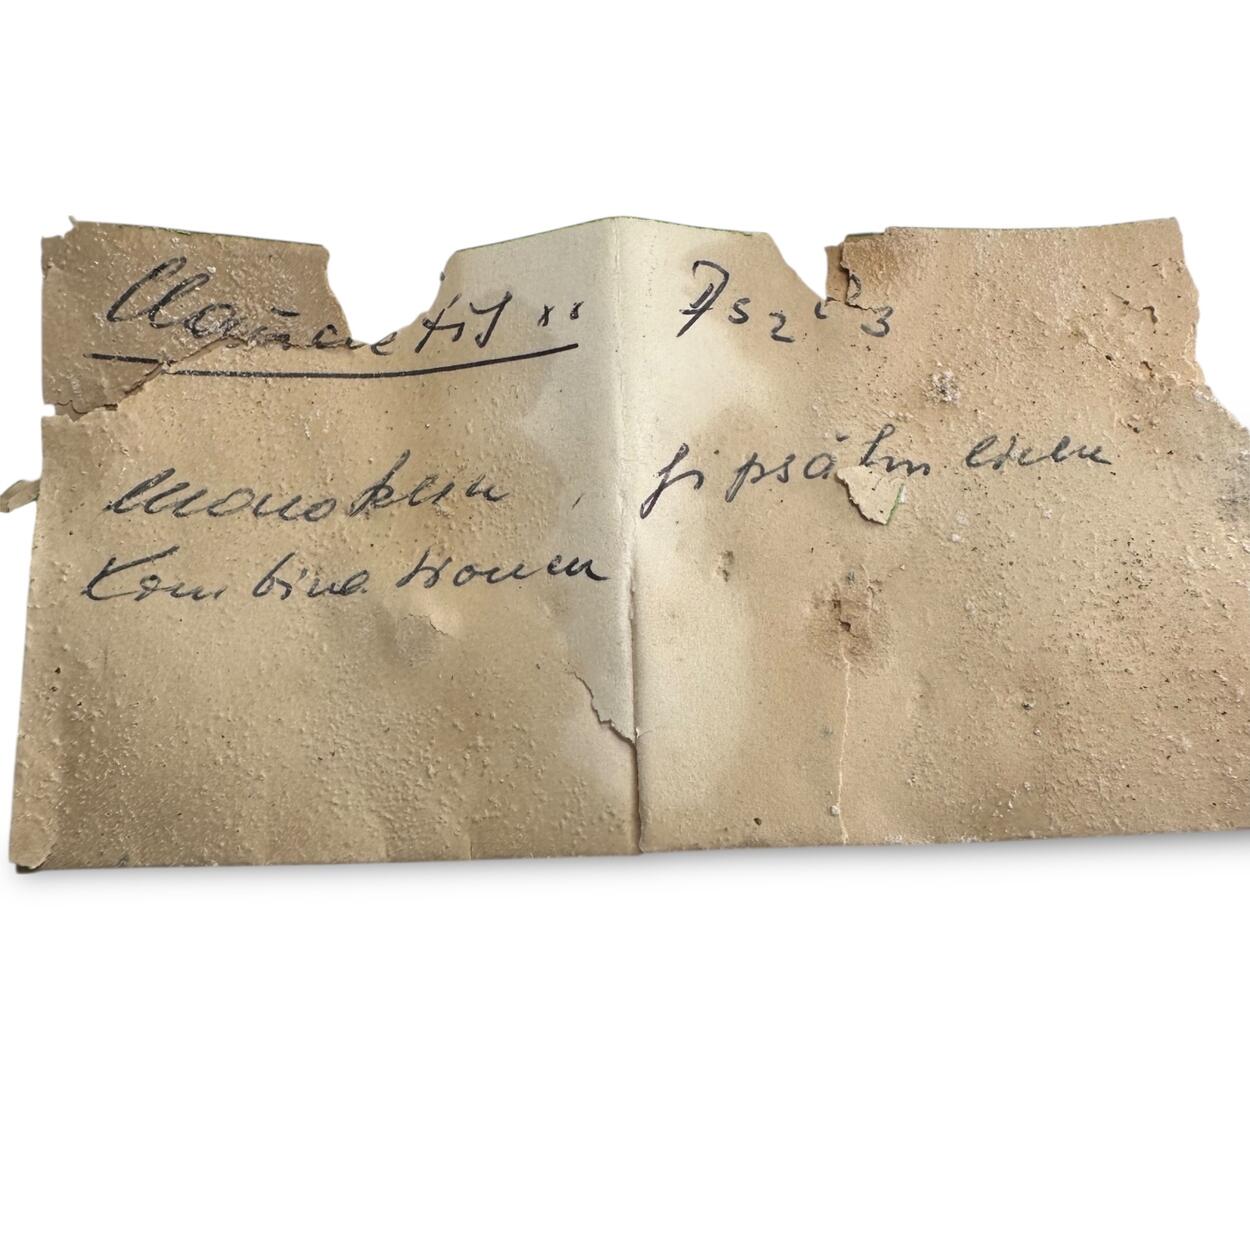 Claudetit xx As2O3
monoklin, gipsähnlichen
Kombinationen